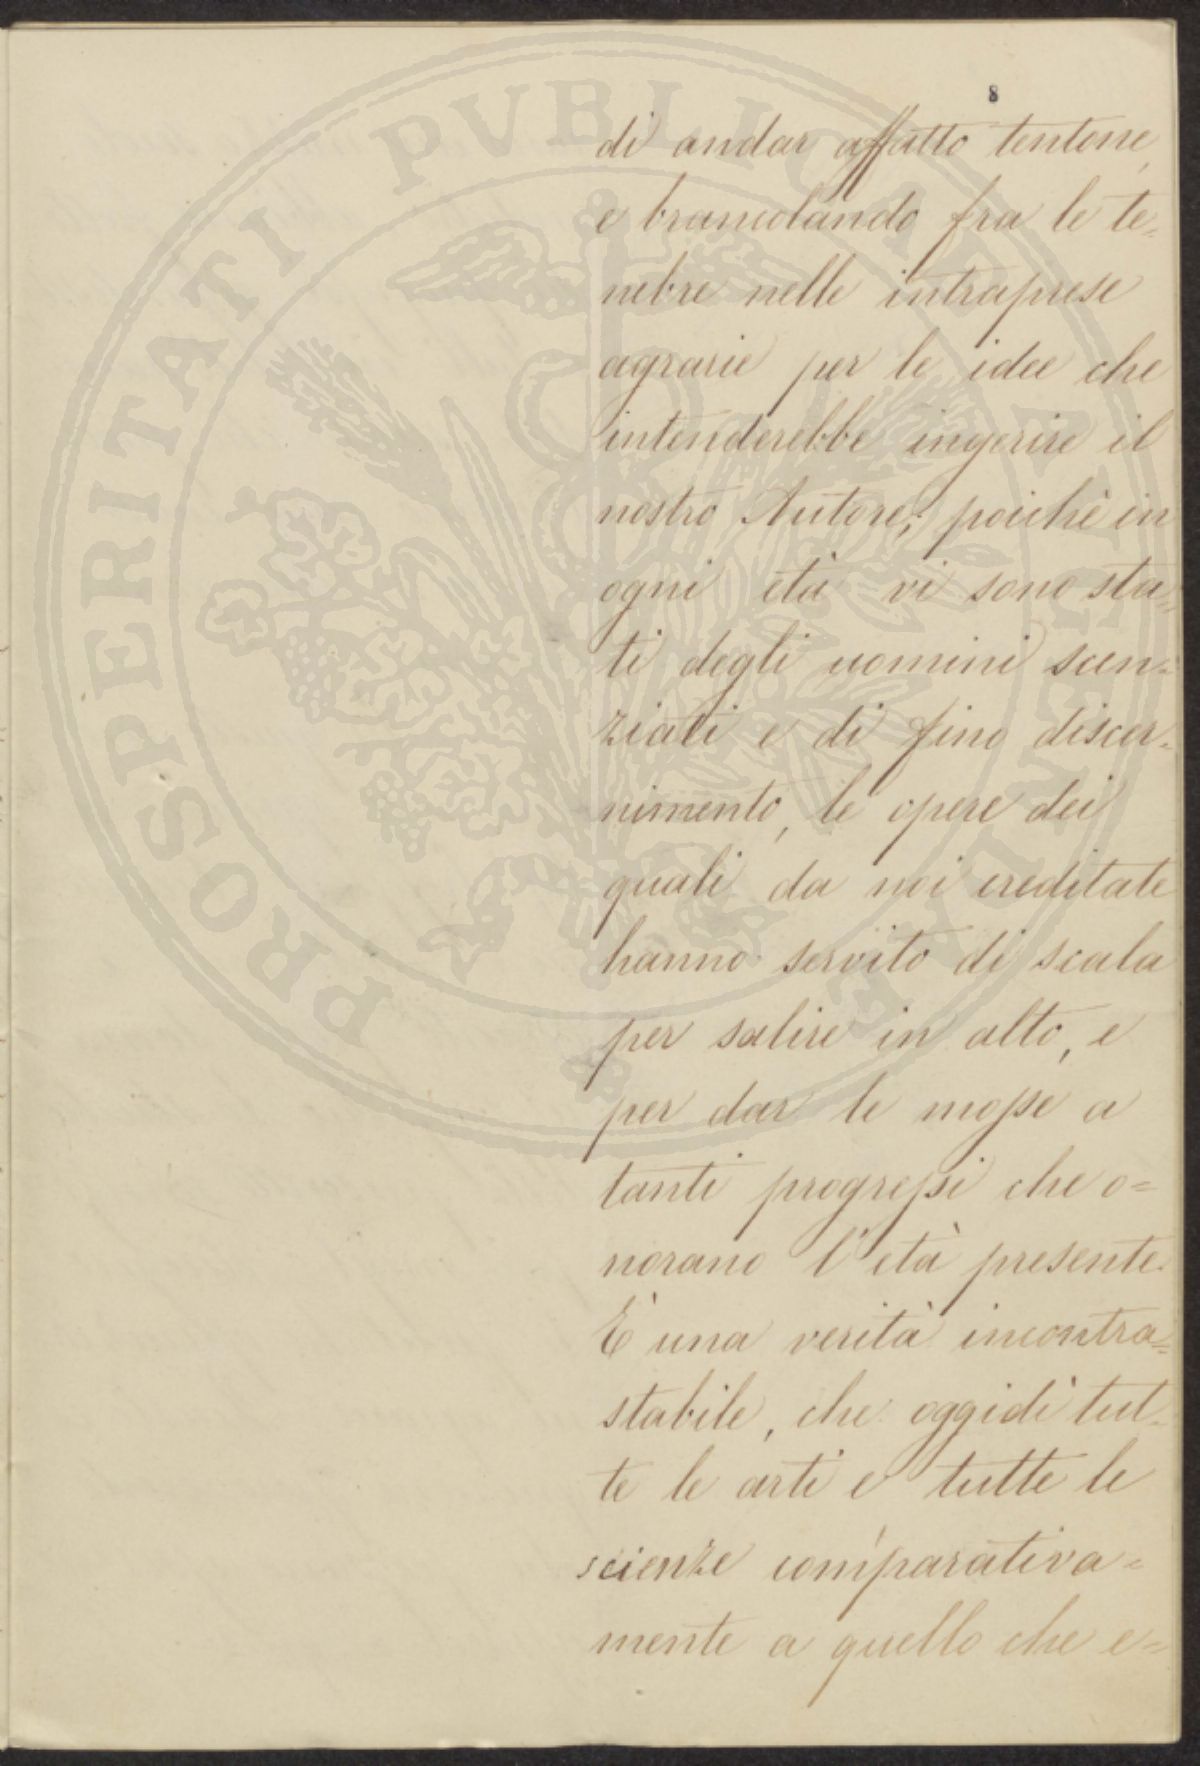 8
di andar affatto tentone,
e brancolando fra le te=
nebre nelle intraprese
agrarie per le idee che
intenderebbe ingerire il
nostro Autore; poichè in
ogni età vi sono sta=
ti degli uomini scen=
ziati e di fino discer=
nimento, le opere dei
quali da noi ereditate
hanno servito di scala
per salire in alto, e
per dar le mosse a
tanti progressi che o=
norano l'età presente.
È una verità incontra=
stabile, che oggidì tut=
te le arti e tutte le
scienze comparativa=
mente a quello che e=
PROSPERITATI PVBLICAE AVGENDAE